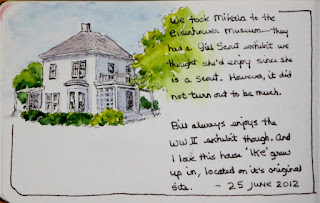 We took Mikaila to the
Eisenhower Museum—they
had a Girl Scout exhibit we
thought she'd enjoy since she
is a scout. However, it did
not turn out to be much.
Bill always enjoys the
WW II exhibit though. And
I love this house 'Ike' grew
up in, located on it's original
site. ~ 25 JUNE 2012